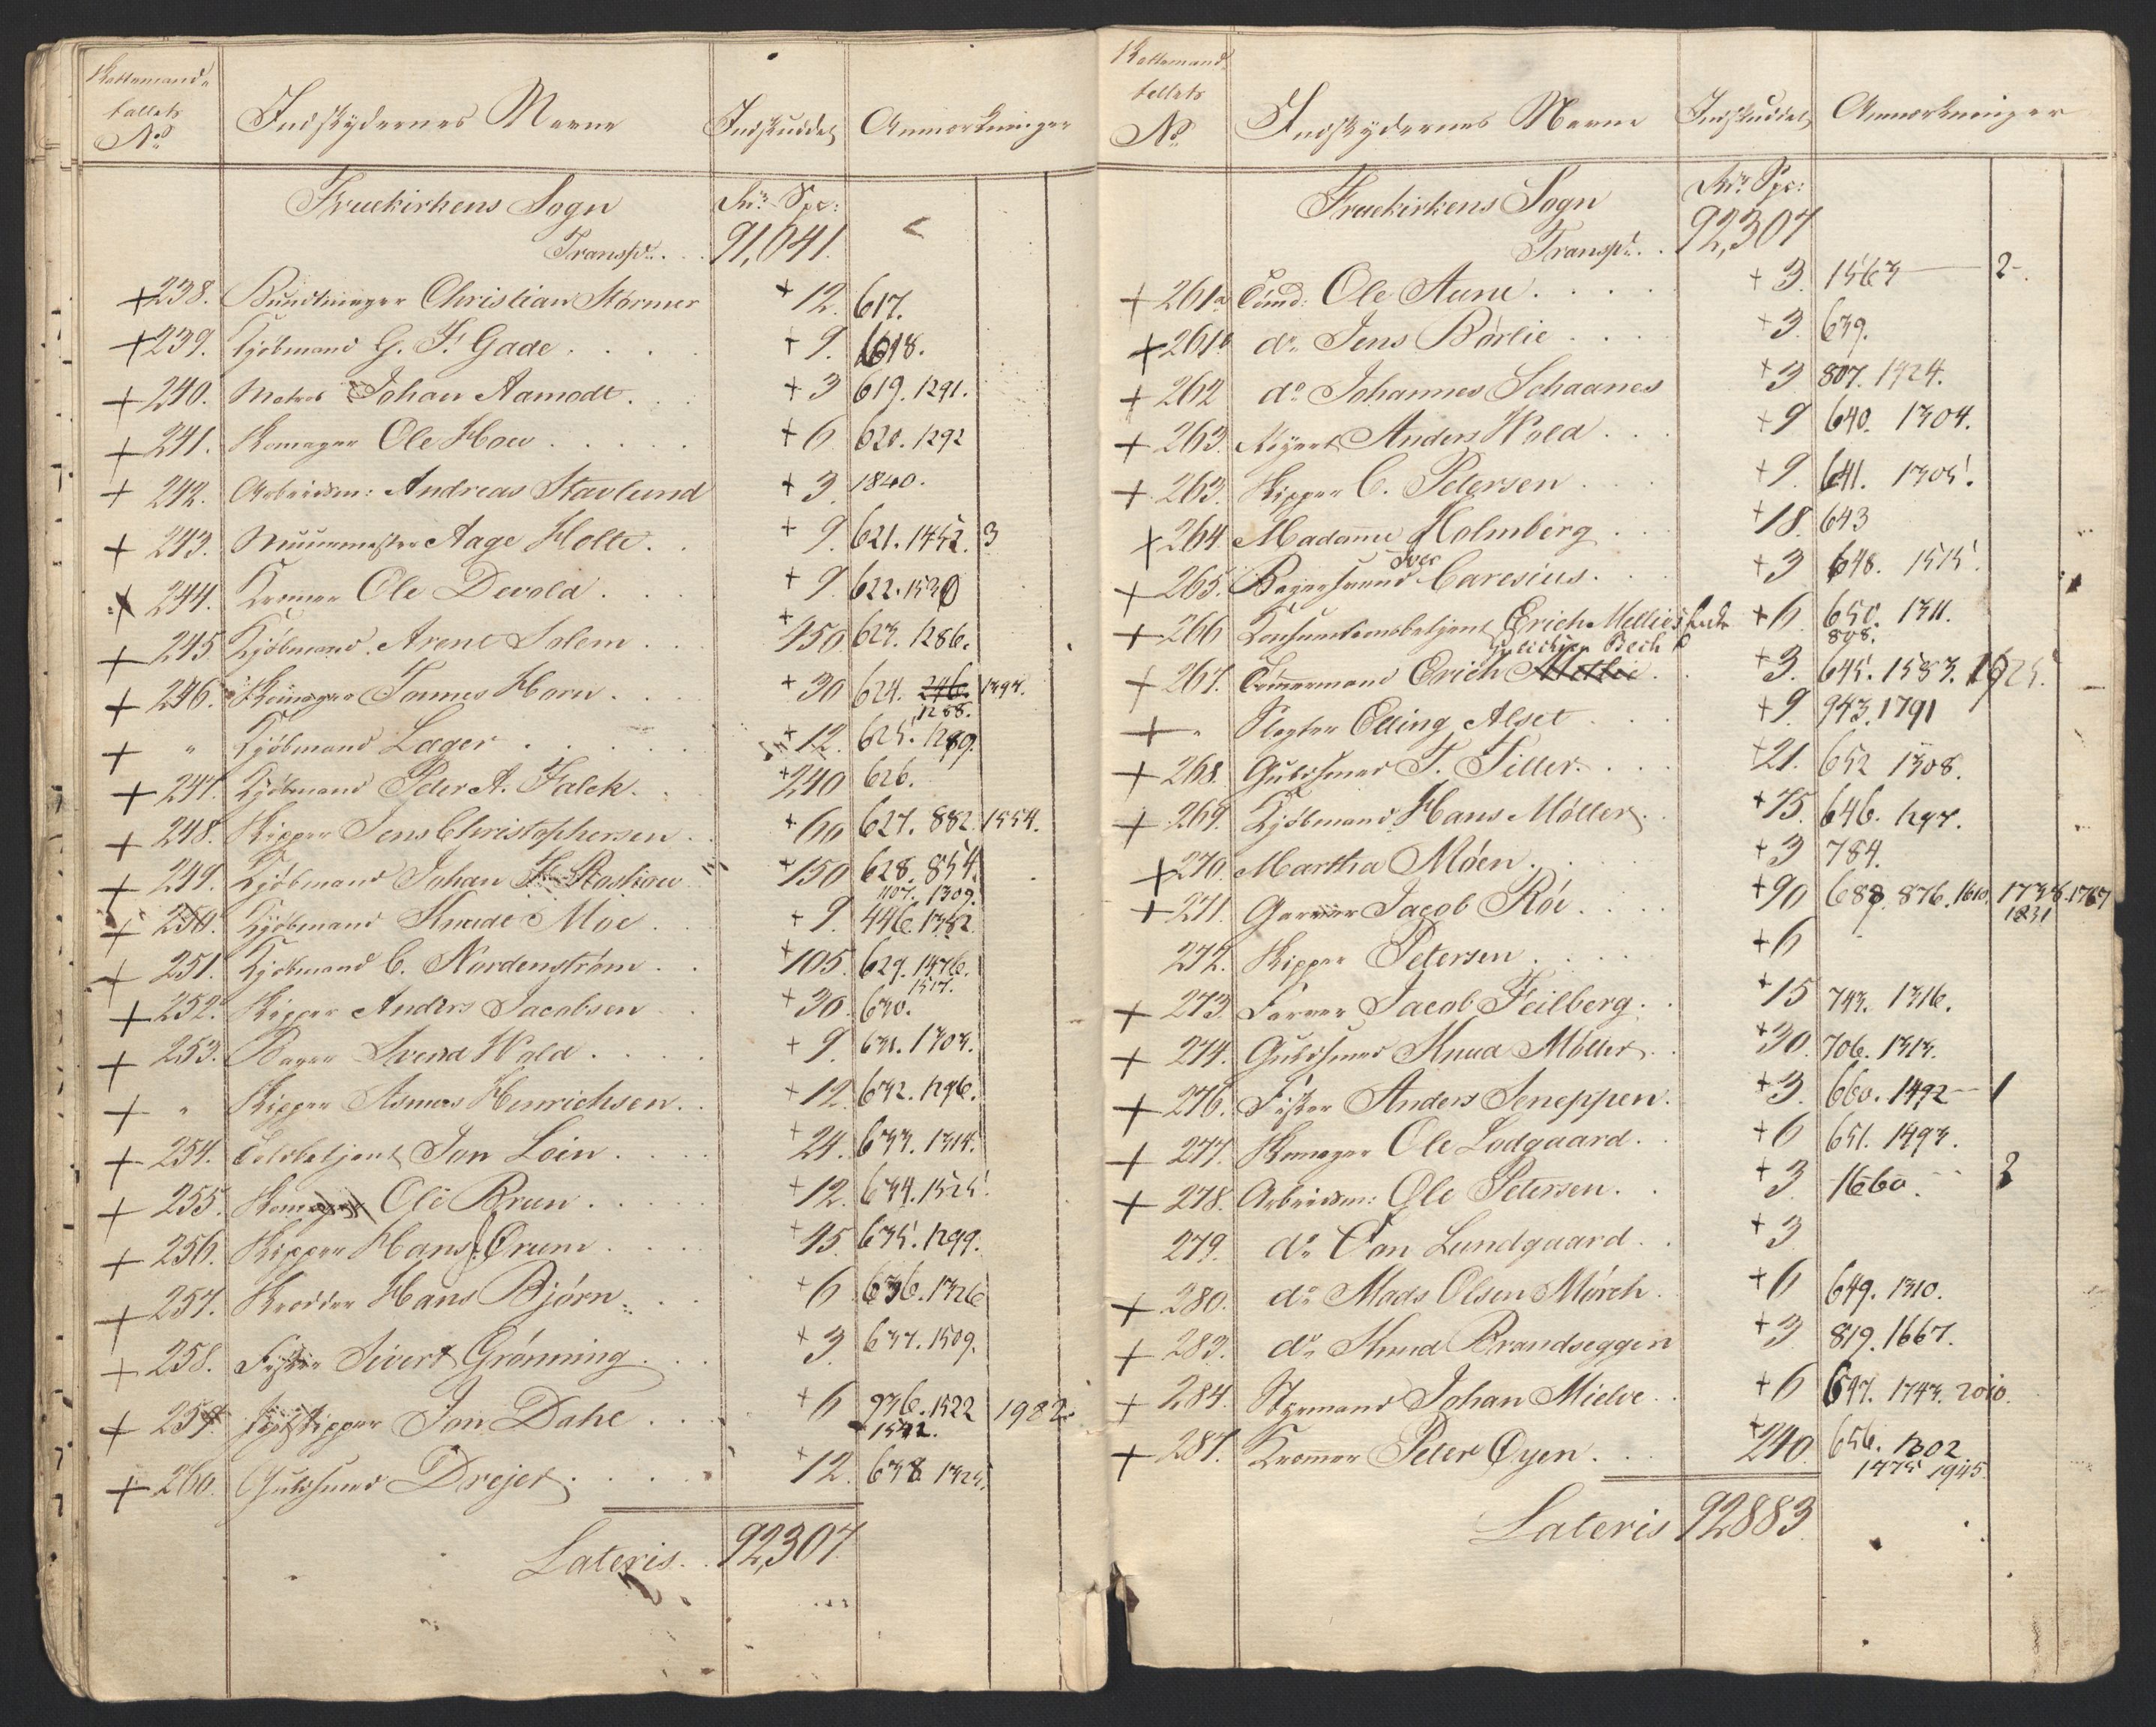 Skattemand-
tallets
No.
Indskydernes Navne
Indskuddet
Anmærkninger
Fruekirkens Sogn
Rdr. Spe:
Transp. . . 91,041.
+ 238. Bundtmager Christian Störmer + 12. 617.
+ 239. Kjöbmand G. F. Gade . . . . + 9. 618.
+ 240. Matros Johan Aamodt . . + 3 619. 1291.
+ 241. Skomager Ole Hou . . . . . + 6 620. 1292
+ 242. Arbeidsm: Andreas Stavlund + 3 1840.
+ 243. Muurmester Aage Holte . . + 9. 621. 1452. 3
+ 244. Kræmer Ole Devold . . . . + 9. 622. 1530
+ 245 Kjöbmand Arent Solem . . . + 450 623. 1286.
+ 246. Skomager Tonnes Horn . . . + 30 624. 246. 1394.
1288.
+ " Kjöbmand Lager . . . . . + 12. 625. 1289.
+ 247. Kjöbmand Peter A. Falck . . + 240 626.
+ 248. Skipper Jens Christophersen . + 60 627. 882. 1554.
+ 249. Kjöbmand Johan + 150 628. 854.
1107. 1309.
+ 250. Kjöbmand Knudt Moe . . + 9. 446. 1382.
+ 251. Kjöbmand C. Nordenström . . + 105. 629. 1476.
1517.
+ 252. Skipper Anders Jacobsen . . + 30. 630.
+ 253. Bager Svend Wold . . . . . + 9. 631. 1303.
+ " Skipper Asmus Henrichsen . . + 12. 632. 1296.
+ 254. Toldbetjent Jon Loin . . . . + 24. 633. 1314.
+ 255. Skomager Ole Bruun . . . . . + 12. 634. 1525.
+ 256. Skipper Hans J. Ørum . . . . + 45. 635. 1299.
+ 257. Skredder Hans Bjórn . . . + 6 636. 1326
+ 258. Fisker Sivert Grønning . . . + 3. 637. 1509.
+ 259. Jagtskipper Jon Dahl . . . . + 6 936. 1522 1982.
1542.
+ 260. Guldsmed Drejer . . . . . + 12. 638 1325.
Lateris . . 92,307.
Skattemand-
tallets
No.
Indskydernes Navne
Indskuddet
Anmærkninger
Fruekirkens Sogn
Rdr. Spe:
Transp. . . 92,307
+ 261a Tömd: Ole Aune . . . . . + 3. 1563 2.
+ 261b do. Jens Børlie . . . + 3. 639.
+ 262 do. Johannes Schaanes + 3 807. 1924.
+ 263. Anders Wold . . . + 9 640. 1304.
+ 263. Skipper C. Petersen . . . + 9. 641. 1305.
+ 264. Madame Holmberg . . + 18. 643
Iver
+ 265. Bagersvend Caresius . . . + 3 648. 1515.
+ 266 Konsumtionsbetjent Erich Mellies + 6 650. 1311.
808.
Bech
+ 267. Tömmermand Erich Mellie . . + 3. 645. 1583. 1625.
+ " Slagter Elling Alset . . . + 9. 943. 1791
+ 268. Guldsmed T. Tiller . . . . + 21. 652 1308.
+ 269. Kjöbmand Hans Møller . + 75. 646. 1297.
+ 270. Martha Móen . . . + 3 784.
+ 271. Garver Jacob Rói . . . . + 90 688. 876. 1610. 1738. 1767
1831
272. Skipper Petersen . . . . + 6
+ 273. Farver Jacob Feilberg . . + 15 743. 1316.
+ 274. Guldsmed Knud Møller . . + 30. 706. 1313.
+ 276. Fisker Anders Sneppen . + 3. 660. 1492 1
+ 277. Skomager Ole Lodgaard . . + 6 651. 1493.
+ 278. Arbeidsm: Ole Petersen . . + 3 1660. 2
279. do. Jon Lundgaard . . + 3
+ 280. do. Mads Olsen Mørch . + 6 649. 1310.
+ 283. do. Knud Brandseggen + 3 819. 1667.
+ 284. Styrmand Johan Mielve . . + 6 647. 1743. 2010.
+ 287. Kræmer Peter Øyen . . . + 240. 656. 1302
1775 1945.
Lateris 92883.